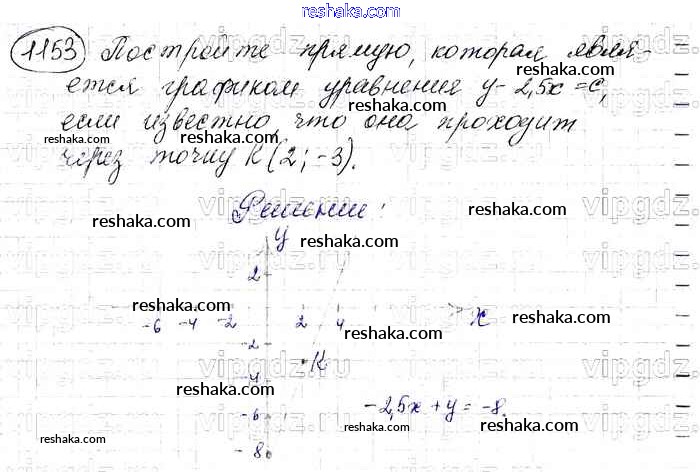 reshaka.com
1153 Постройте прямую, которая явля-
reshaka.com
ется графиком уравнения y - 2,5x = c,
если известно что она проходит
reshaka.com
через точку K(2; -3).
reshaka.com
Решение:
reshaka.com reshaka.com
y
2
reshaka.com
-6 -4 -2 2 4 x
reshaka.com reshaka.com
-2
K
-4
reshaka.com reshaka.com
-6 -2,5x + y = -8.
reshaka.com reshaka.com
-8
reshaka.com
reshaka.com